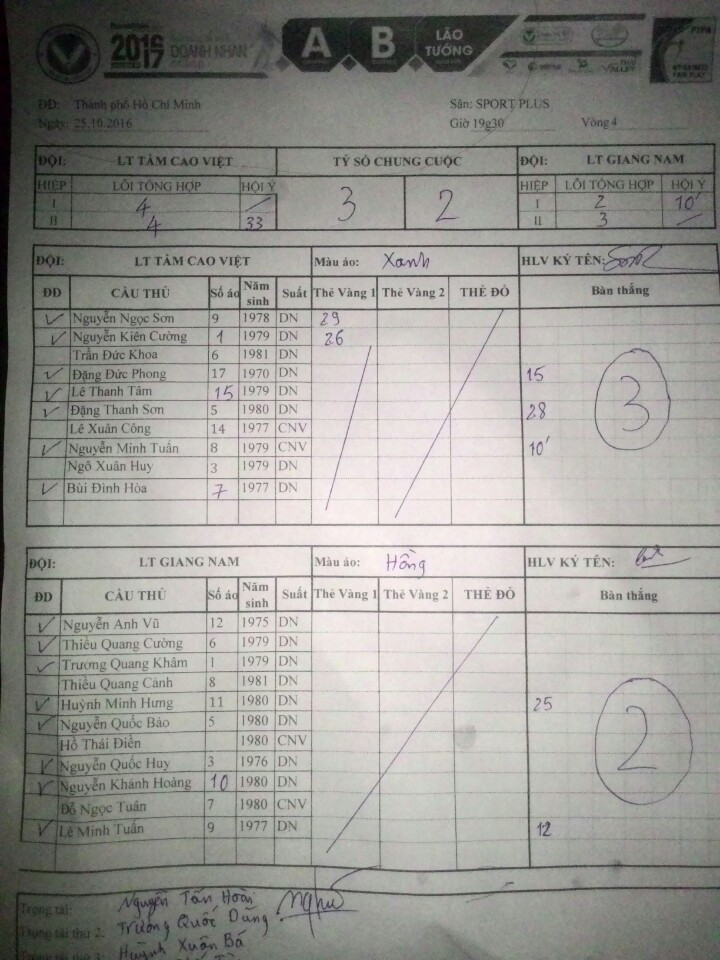 2016
2017
DOANH NHÂN
A
B
LÃO
TƯỚNG
ĐĐ: Thành phố Hồ Chí Minh Sân: SPORT PLUS
Ngày: 25.10.2016 Giờ 19g30 Vòng 4
ĐỘI: LT TÂM CAO VIỆT TỶ SỐ CHUNG CUỘC ĐỘI: LT GIANG NAM
HIỆP LỖI TỔNG HỢP HỘI Ý 3 2 HIỆP LỖI TỔNG HỢP HỘI Ý
I 4 / I 2 10'
II 4 33 II 3 /
ĐỘI: LT TÂM CAO VIỆT Màu áo: Xanh HLV KÝ TÊN:
ĐD CẦU THỦ Số áo Năm sinh Suất Thẻ Vàng 1 Thẻ Vàng 2 THẺ ĐỎ Bàn thắng
✓ Nguyễn Ngọc Sơn 9 1978 DN 29
✓ Nguyễn Kiên Cường 1 1979 DN 26
Trần Đức Khoa 6 1981 DN
✓ Đặng Đức Phong 17 1970 DN 15
✓ Lê Thanh Tâm 15 1979 DN
✓ Đặng Thanh Sơn 5 1980 DN 28
Lê Xuân Công 14 1977 CNV
✓ Nguyễn Minh Tuấn 8 1979 CNV 10'
Ngô Xuân Huy 3 1979 DN
✓ Bùi Đình Hòa 7 1977 DN
3
ĐỘI: LT GIANG NAM Màu áo: Hồng HLV KÝ TÊN:
ĐD CẦU THỦ Số áo Năm sinh Suất Thẻ Vàng 1 Thẻ Vàng 2 THẺ ĐỎ Bàn thắng
✓ Nguyễn Anh Vũ 12 1975 DN
✓ Thiều Quang Cường 6 1979 DN
✓ Trương Quang Khâm 1 1979 DN
Thiều Quang Cảnh 8 1981 DN
✓ Huỳnh Minh Hưng 11 1980 DN 25
✓ Nguyễn Quốc Bảo 5 1980 DN
Hồ Thái Điền 1980 CNV
✓ Nguyễn Quốc Huy 3 1976 DN
✓ Nguyễn Khánh Hoàng 10 1980 DN
Đỗ Ngọc Tuân 7 1980 CNV
✓ Lê Minh Tuấn 9 1977 DN 12
2
Trọng tài: Nguyễn Tấn Hoài
Trọng tài thứ 2: Trương Quốc Dũng
Trọng tài thứ 3: Huỳnh Xuân Bá